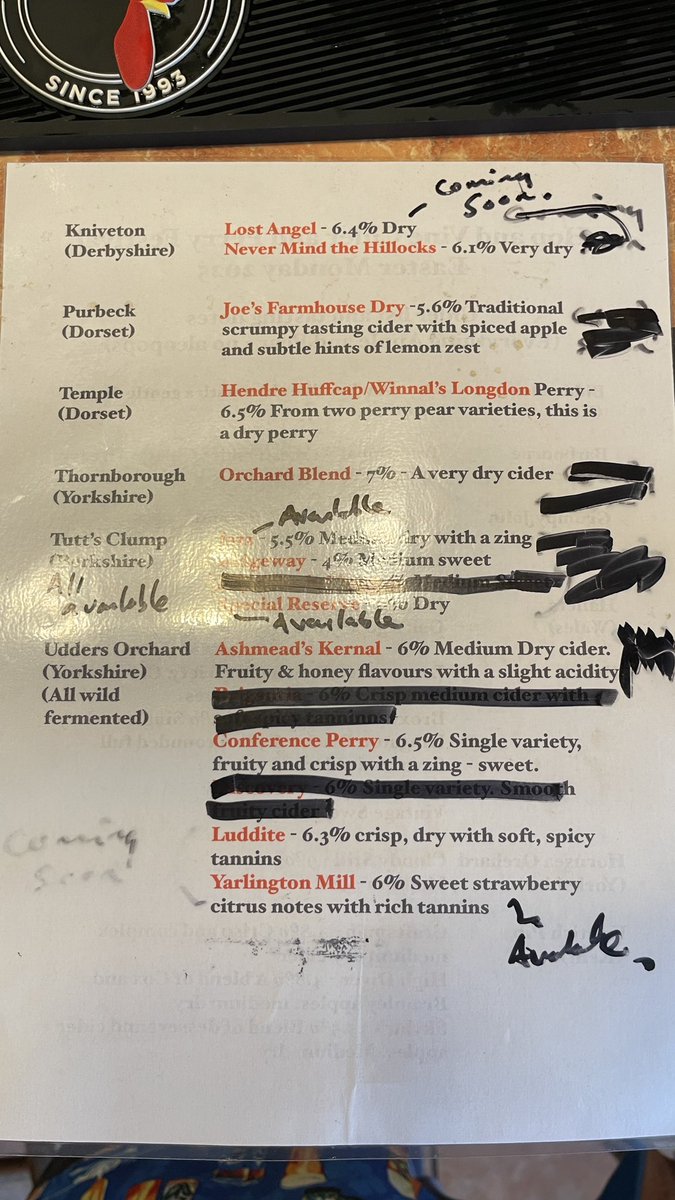 SINCE 1993
Coming
Soon.
Coming
Kniveton
(Derbyshire)
Lost Angel - 6.4% Dry
Never Mind the Hillocks - 6.1% Very dry
Purbeck
(Dorset)
Joe's Farmhouse Dry -5.6% Traditional
scrumpy tasting cider with spiced apple
and subtle hints of lemon zest
Temple
(Dorset)
Hendre Huffcap/Winnal's Longdon Perry -
6.5% From two perry pear varieties, this is
a dry perry
Thornborough
(Yorkshire)
Orchard Blend - 7% - A very dry cider
Available
Tutt's Clump
(Berkshire)
- 5.5% Medium dry with a zing
- 4% Medium sweet
Special Reserve % Dry
All
available
Available
Udders Orchard
(Yorkshire)
(All wild
fermented)
Ashmead's Kernal - 6% Medium Dry cider.
Fruity & honey flavours with a slight acidity
- 6% Crisp medium cider with
spicy tanninns
Conference Perry - 6.5% Single variety,
fruity and crisp with a zing - sweet.
- 6% Single variety. Smooth
fruity cider
Luddite - 6.3% crisp, dry with soft, spicy
tannins
Yarlington Mill - 6% Sweet strawberry
citrus notes with rich tannins
Coming
Soon
Available.